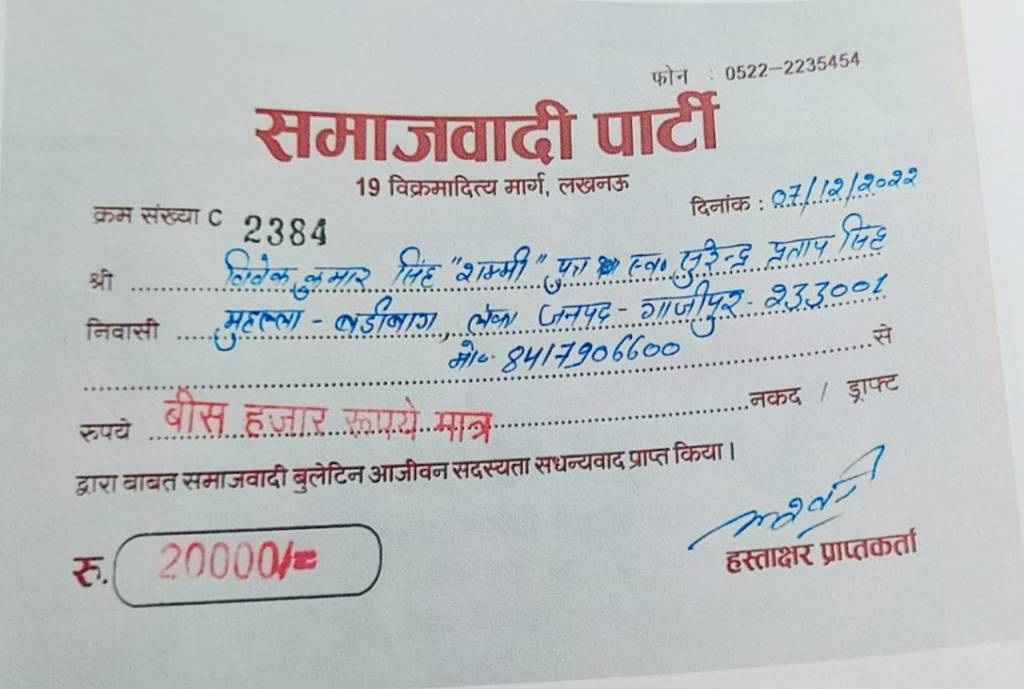 फोन : 0522-2235454
समाजवादी पार्टी
19 विक्रमादित्य मार्ग, लखनऊ
क्रम संख्या C 2384 दिनांक : 07/12/2022
श्री विवेक कुमार सिंह "शम्मी" पुत्र स्व० सुरेन्द्र प्रताप सिंह
निवासी मुहल्ला - बडीबाग, लंका जनपद - गाजीपुर - 233001
मो० 8417906600 से
रुपये बीस हजार रूपये मात्र नकद / ड्राफ्ट
द्वारा बाबत समाजवादी बुलेटिन आजीवन सदस्यता सधन्यवाद प्राप्त किया।
रु. 20000/=
हस्ताक्षर प्राप्तकर्ता